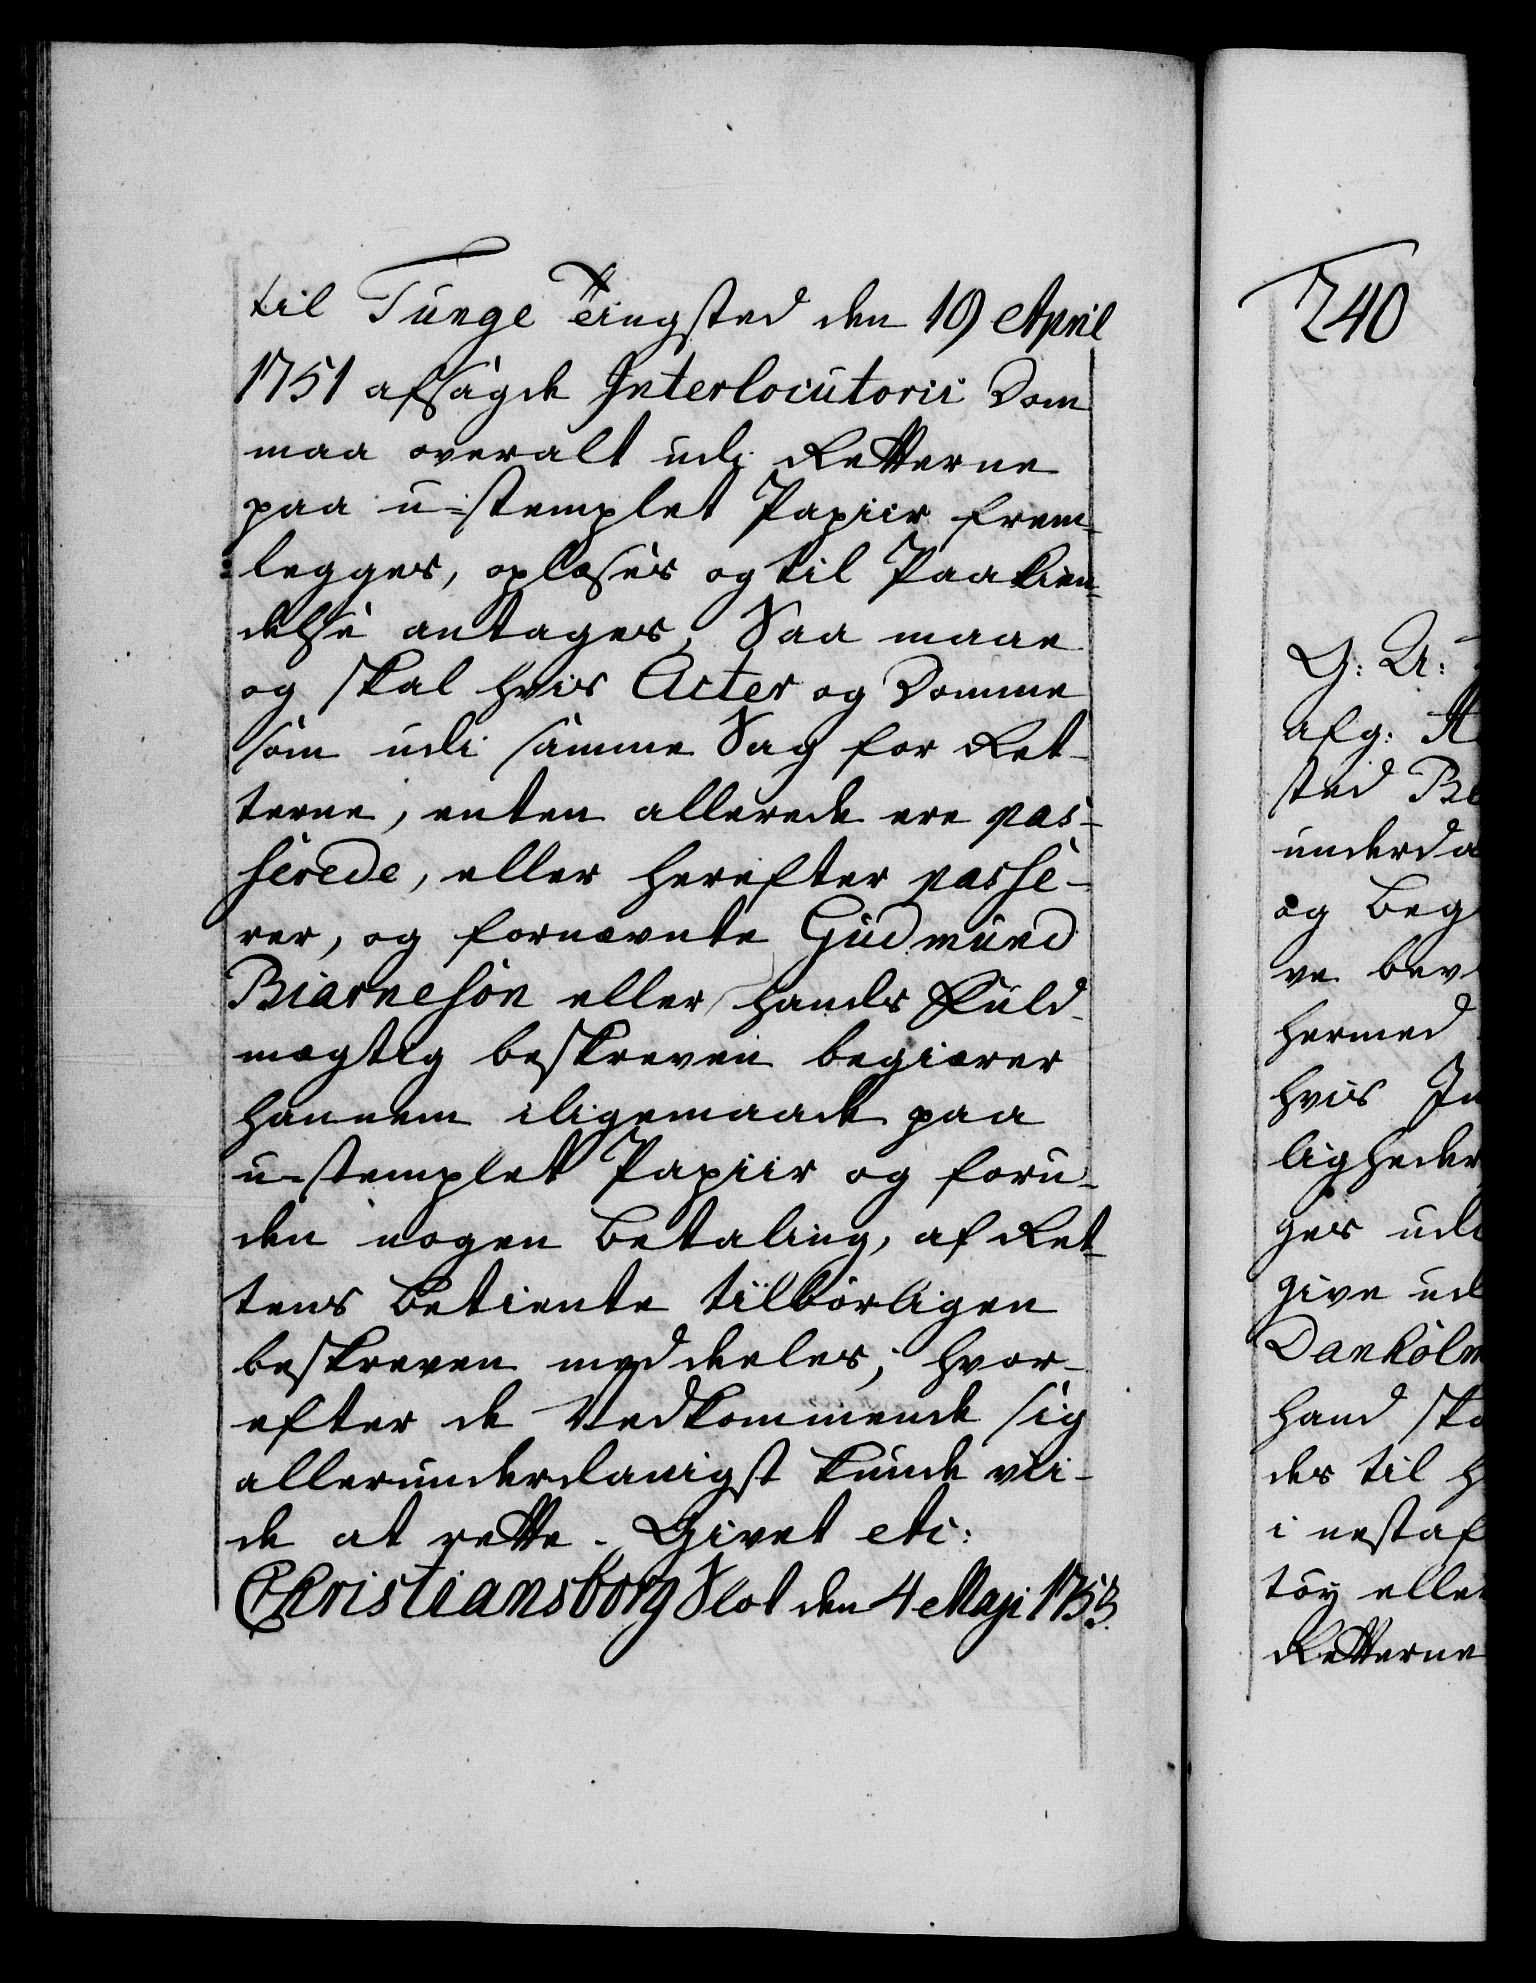 til Tunge Tingsted den 19 April
1751 afsagde Interlocutorii Dom
maa overalt udj Retterne
paa u-stemplet Papiir frem-
legges, oplæses og til Paakien-
delse antages, Saa maae
og skal hvis Acter og Domme
som udi samme Sag for Ret-
terne, enten allerede ere pas-
serede, eller herefter passe-
rer, og fornævnte Gudmund
Biarnesøn eller hands Fuld-
mægtig beskreven begiærer
hannem iligemaade paa
u-stemplet Papiir og foru-
den nogen Betaling, af Ret-
tens Betiente tilbørligen
beskreven meddeeles; hvor-
efter de Vedkommende sig
allerunderdanigst kunde vii-
de at rette. Givet etc:
Christiansborg Slot den 4 Maji 1753.
240
G: A:
afg:
sted
underda
og Beg
ve bev
hermed
hvis In
ligheder
ges udi
give ud
Dankølm
hand ska
des til h
i nestaf
tøy eller
Retterne